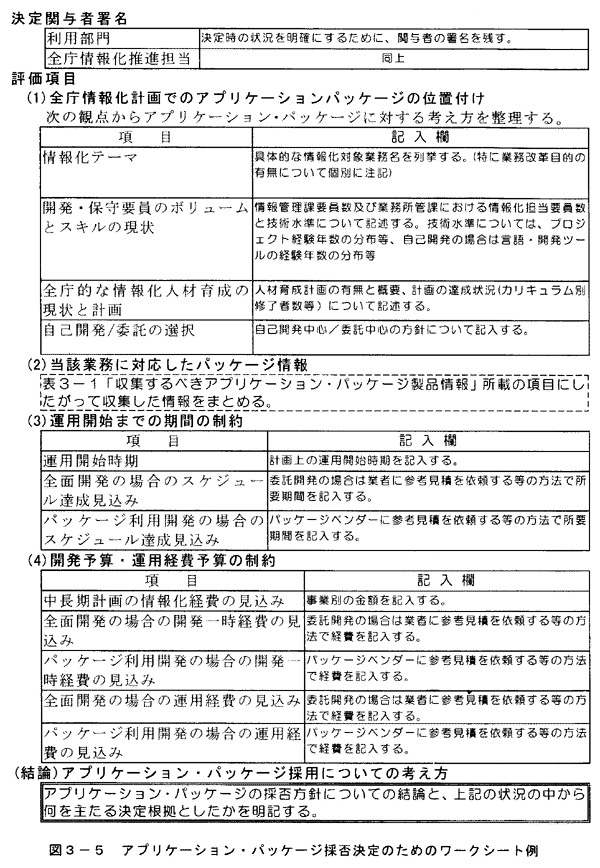 決定関与者署名
利用部門
決定時の状況を明確にするために、関与者の署名を残す。
全庁情報化推進担当
同上
評価項目
(1)全庁情報化計画でのアプリケーションパッケージの位置付け
次の観点からアプリケーション・パッケージに対する考え方を整理する。
項　目
記入欄
情報化テーマ
具体的な情報化対象業務名を列挙する。(特に業務改革目的の
有無について個別に注記)
開発・保守要員のボリューム
とスキルの現状
情報管理課要員数及び業務所管課における情報化担当要員数
と技術水準について記述する。技術水準については、プロジ
ェクト経験年数の分布等、自己開発の場合は言語・開発ツー
ルの経験年数の分布等
全庁的な情報化人材育成の
現状と計画
人材育成計画の有無と概要、計画の達成状況(カリキュラム別
修了者数等）について記述する。
自己開発/委託の選択
自己開発中心／委託中心の方針について記入する。
(2)当該業務に対応したパッケージ情報
表３－１「収集するべきアプリケーション・パッケージ製品情報」所載の項目にし
たがって収集した情報をまとめる。
(3)運用開始までの期間の制約
項　目
記入欄
運用開始時期
計画上の運用開始時期を記入する。
全面開発の場合のスケジュー
ル達成見込み
委託開発の場合は業者に参考見積を依頼する等の方法で所
要期間を記入する。
パッケージ利用開発の場合の
スケジュール達成見込み
パッケージベンダーに参考見積を依頼する等の方法で所要
期間を記入する。
(4)開発予算・運用経費予算の制約
項　目
記入欄
中長期計画の情報化経費の見込み
事業別の金額を記入する。
全面開発の場合の開発一時経費の見
込み
委託開発の場合は業者に参考見積を依頼する等の方
法で経費を記入する。
パッケージ利用開発の場合の開発一
時経費の見込み
パッケージベンダーに参考見積を依頼する等の方法
で経費を記入する。
全面開発の場合の運用経費の見込み
委託開発の場合は業者に参考見積を依頼する等の方
法で経費を記入する。
パッケージ利用開発の場合の運用経
費の見込み
パッケージベンダーに参考見積を依頼する等の方法
で経費を記入する。
(結論)アプリケーション・パッケージ採用についての考え方
アプリケーション・パッケージの採否方針についての結論と、上記の状況の中から
何を主たる決定根拠としたかを明記する。
図３－５　アプリケーション・パッケージ採否決定のためのワークシート例